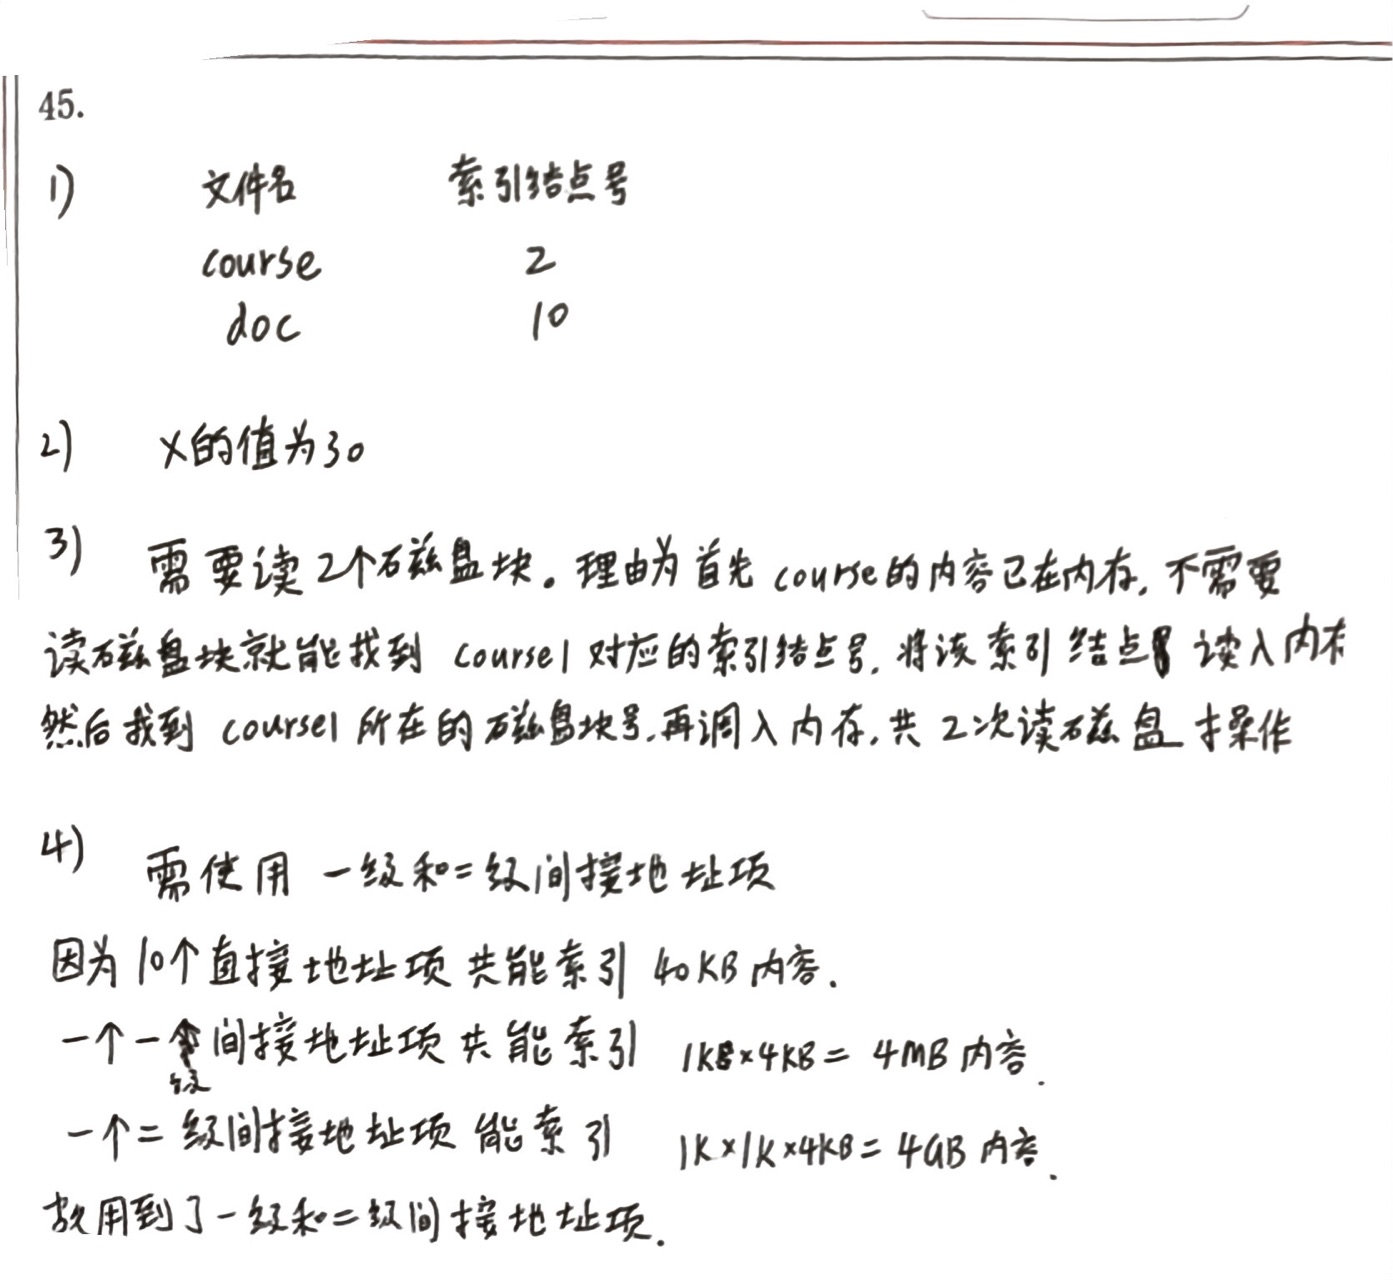 45.
1) 文件名 索引结点号
course 2
doc 10
2) X的值为30
3) 需要读2个磁盘块。理由为首先course的内容已在内存,不需要
读磁盘块就能找到 course1 对应的索引结点号,将该索引结点 读入内存
然后找到 course1 所在的磁盘块号,再调入内存,共2次读磁盘操作
4) 需使用 一级和二级间接地址项
因为10个直接地址项共能索引 40KB内容.
一个一级间接地址项共能索引 1KB×4KB = 4MB内容.
一个二级间接地址项能索引 1K×1K×4KB = 4GB内容.
故用到了一级和二级间接地址项.